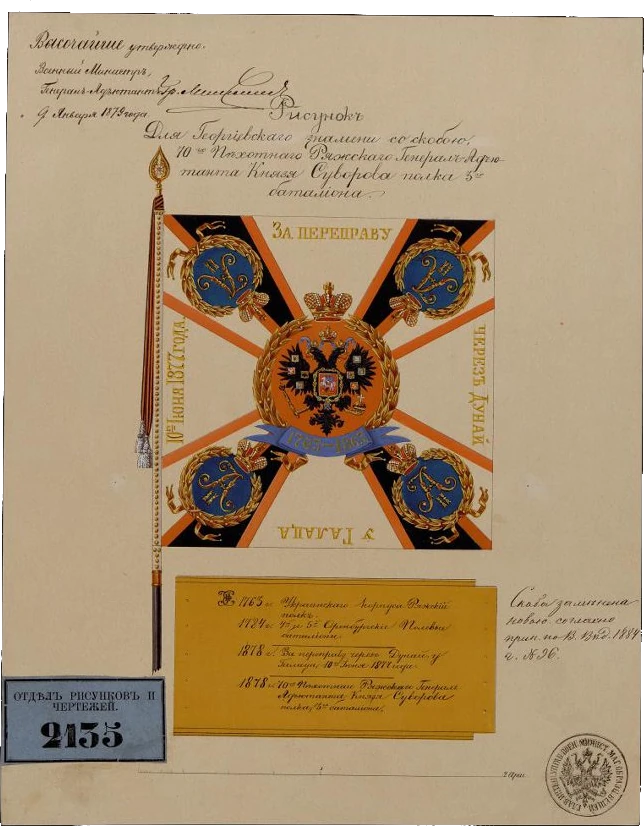 Высочайше утверждено.
Военный Министръ,
Генералъ-Адъютантъ Гр. Милютинъ
9 Января 1879 года.
Рисунокъ
Для Георгіевскаго знамени со скобою,
70го Пѣхотнаго Ряжскаго Генералъ-Адъю-
танта Князя Суворова полка 3го
баталіона.
За переправу
черезъ Дунай
у Галаца
10го Іюня 1877 года
1763-1863
1763 г. Украинскаго корпуса Ряжскій
полкъ.
1784 г. 4й и 5й Оренбургскіе Полевые
баталіоны.
1878 г. За переправу черезъ Дунай у
Галаца 10го Іюня 1877 года.
1878 г. 70го Пѣхотнаго Ряжскаго Генералъ
Адъютанта Князя Суворова
полка, 3го баталіона.
Скоба замѣнена
новою согласно
прик. по В. Вѣд. 1884
г. № 96.
ОТДѢЛЪ РИСУНКОВЪ И
ЧЕРТЕЖЕЙ.
2135
2 Арш.